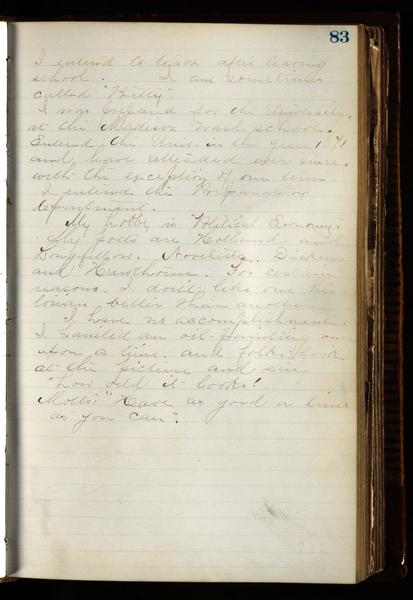 83
I intend to teach after leaving
school. I am sometimes
called "Kitty".
I was prepared for the University,
at the Madison Ward schools.
Entered the Univ. in the year 1871
and have attended ever since,
with the exception of one term.
I entered the Preparatory
department.
My hobby is "Political Economy".
My poets are Holland and
Longfellow. Novelists, Dickens
and Hawthorne. For certain
reasons I don't like one his-
torian better than another.
I have no accomplishment.
I painted an oil-painting once
upon a time and folks look
at the picture and say
"How old it looks!
Motto: "Have as good a time
as you can".